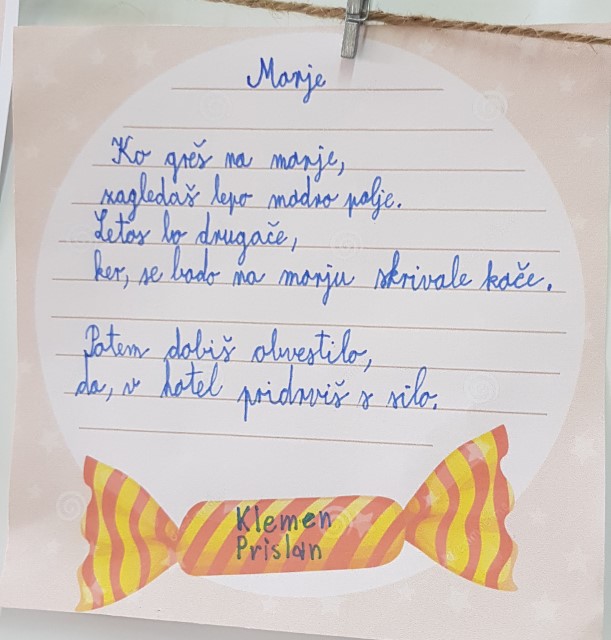 Morje
Ko greš na morje,
zagledaš lepo modro polje.
Letos bo drugače,
ker, se bodo na morju skrivale kače.
Potem dobiš obvestilo,
da, v hotel pridrviš s silo.
Klemen
Prislan